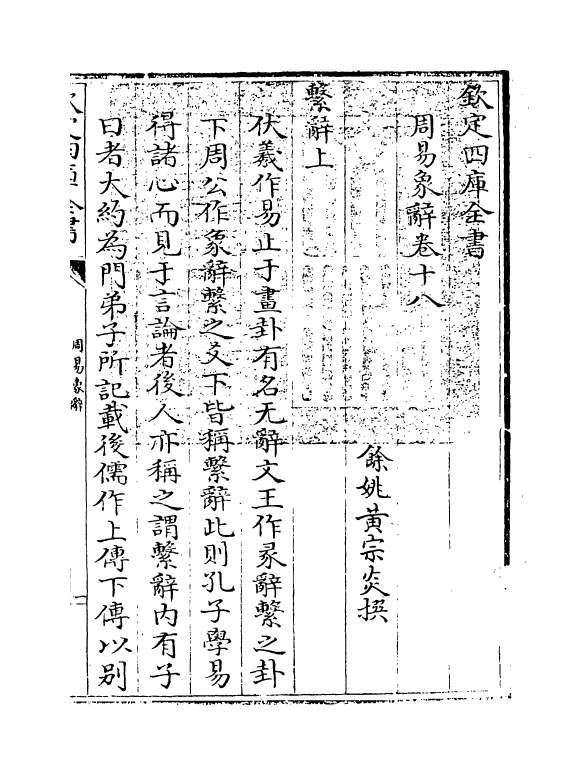 欽定四庫全書
周易象辭卷十八
餘姚黃宗炎撰
繫辭上
伏羲作易止于畫卦有名无辭文王作彖辭繫之卦
下周公作象辭繫之爻下皆稱繫辭此則孔子學易
得諸心而見于言論者後人亦稱之謂繫辭内有子
曰者大約為門弟子所記載後儒作上傳下傳以别
欽定四庫全書
周易象辭
一